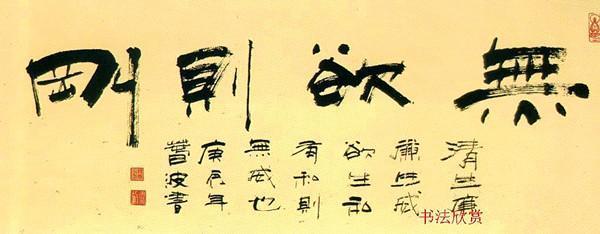 無欲則剛
清生廉
廉生威
欲生私
有私則
無威也
庚辰年
波書
书法欣赏